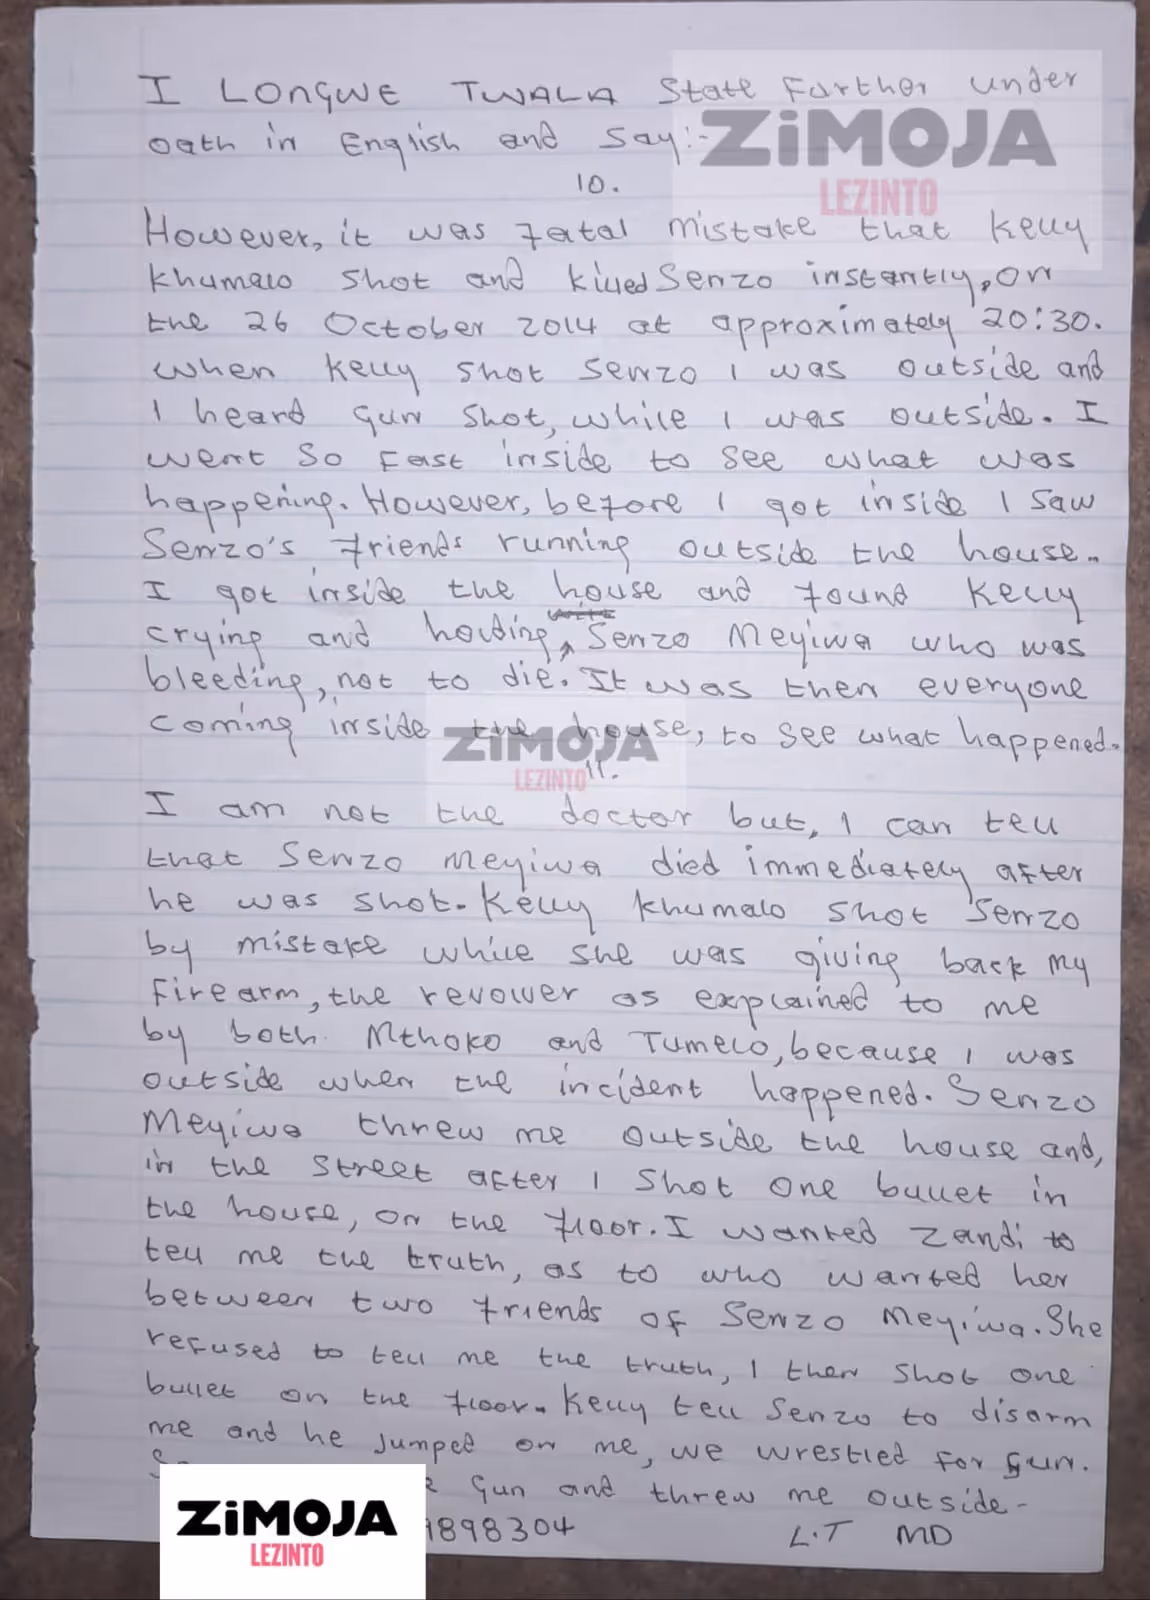 I LONGWE TWALA State Further under
oath in English and say:-
ZiMOJA
LEZINTO
10.
However, it was fatal mistake that Kelly
Khumalo shot and killed Senzo instantly, on
the 26 October 2014 at approximately 20:30.
When Kelly shot Senzo I was outside and
I heard gun shot, while I was outside. I
went so fast inside to see what was
happening. However, before I got inside I saw
Senzo's friends running outside the house.
I got inside the house and found Kelly
crying and holding Senzo Meyiwa who was
bleeding, not to die. It was then everyone
coming inside the house, to see what happened.
ZiMOJA
LEZINTO
11.
I am not the doctor but, I can tell
that Senzo Meyiwa died immediately after
he was shot. Kelly Khumalo shot Senzo
by mistake while she was giving back my
firearm, the revolver as explained to me
by both Mthoko and Tumelo, because I was
outside when the incident happened. Senzo
Meyiwa threw me outside the house and,
in the street after I shot one bullet in
the house, on the floor. I wanted Zandi to
tell me the truth, as to who wanted her
between two friends of Senzo Meyiwa. She
refused to tell me the truth, I then shot one
bullet on the floor. Kelly tell Senzo to disarm
me and he jumped on me, we wrestled for gun.
gun and threw me outside -
ZiMOJA
LEZINTO
1898304 L.T MD